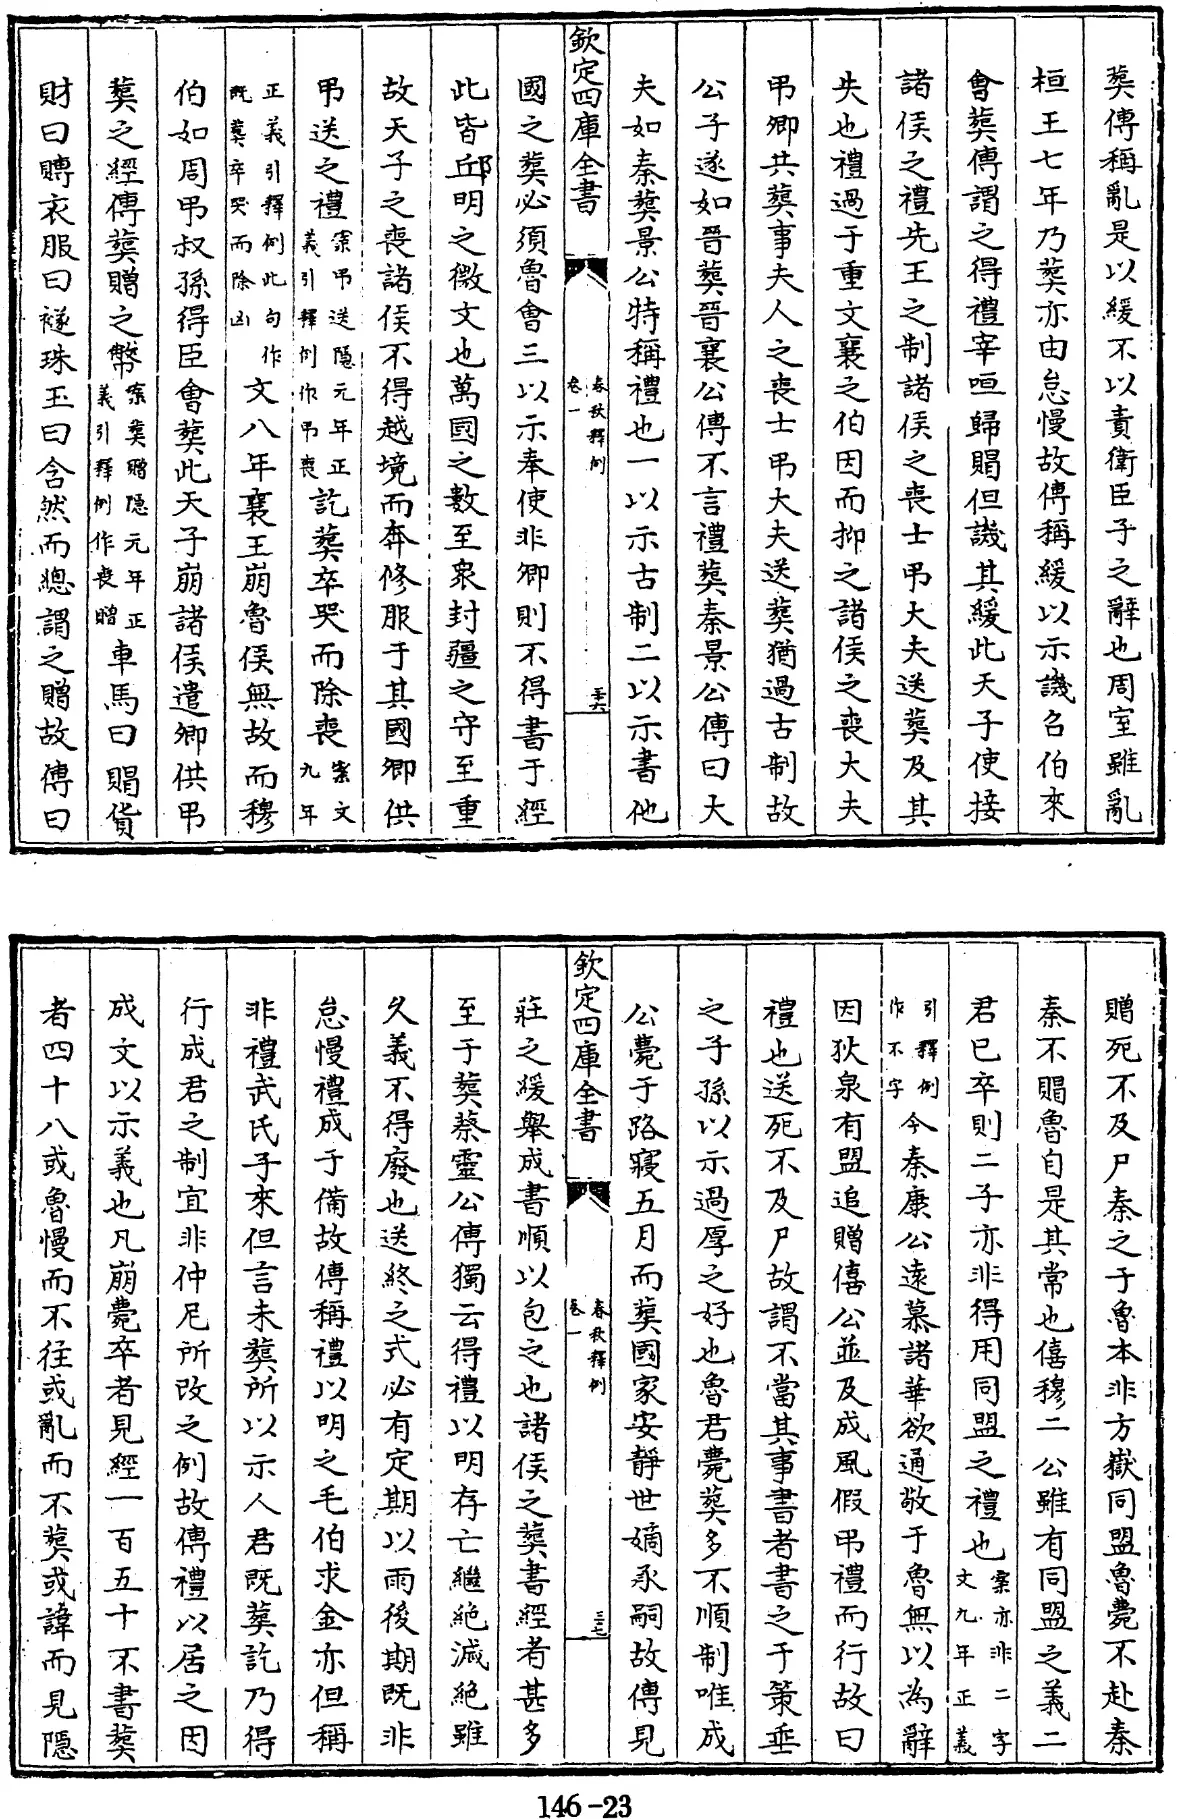 葬傳稱亂是以緩不以責衛臣子之辭也周室雖亂
桓王七年乃葬亦由怠慢故傳稱緩以示譏名伯來
會葬傳謂之得禮宰咺歸賵但譏其緩此天子使接
諸侯之禮先王之制諸侯之喪士弔大夫送葬及其
失也禮過于重文襄之伯因而抑之諸侯之喪大夫
弔卿共葬事夫人之喪士弔大夫送葬猶過古制故
公子遂如晉葬晉襄公傳不言禮葬秦景公傳曰大
夫如秦葬景公特稱禮也一以示古制二以示書他
欽定四庫全書
春秋釋例
卷一
三六
國之葬必須魯會三以示奉使非卿則不得書于經
此皆邱明之微文也萬國之數至衆封疆之守至重
故天子之喪諸侯不得越境而奔修服于其國卿供
弔送之禮案弔送隱元年正義引釋例作弔喪訖葬卒哭而除喪案文九年
正義引釋例此句作既葬卒哭而除凶文八年襄王崩魯侯無故而穆
伯如周弔叔孫得臣會葬此天子崩諸侯遣卿供弔
葬之經傳葬贈之幣案葬贈隱元年正義引釋例作喪贈車馬曰賵貨
財曰賻衣服曰襚珠玉曰含然而總謂之贈故傳曰
贈死不及尸秦之于魯本非方嶽同盟魯薨不赴秦
秦不賵魯自是其常也僖穆二公雖有同盟之義二
君已卒則二子亦非得用同盟之禮也案亦非二字文九年正義
引釋例作不字今秦康公遠慕諸華欲通敬于魯無以為辭
因狄泉有盟追贈僖公並及成風假弔禮而行故曰
禮也送死不及尸故謂不當其事書者書之于策垂
之子孫以示過厚之好也魯君薨葬多不順制唯成
公薨于路寢五月而葬國家安靜世嫡承嗣故傳見
欽定四庫全書
春秋釋例
卷一
三七
莊之緩舉成書順以包之也諸侯之葬書經者甚多
至于葬蔡靈公傳獨云得禮以明存亡繼絶滅絶雖
久義不得廢也送終之式必有定期以雨後期既非
怠慢禮成于備故傳稱禮以明之毛伯求金亦但稱
非禮武氏子來但言未葬所以示人君既葬訖乃得
行成君之制宜非仲尼所改之例故傳禮以居之因
成文以示義也凡崩薨卒者見經一百五十不書葬
者四十八或魯慢而不往或亂而不葬或諱而見隱
146-23